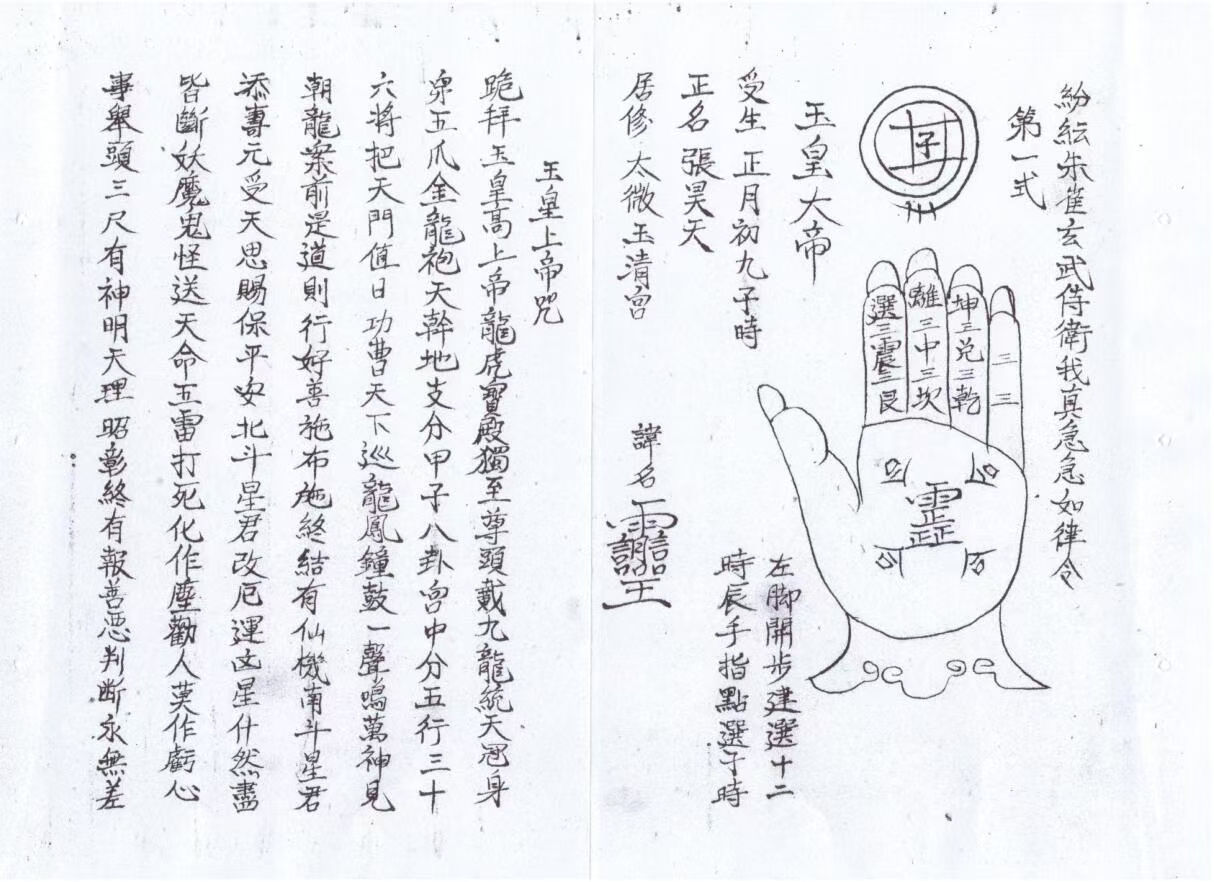 紛紜朱雀玄武侍衛我真急急如律令
第一式
子
坤三兌三乾
離三中三坎
選三震三艮
三三
左脚開步建選十二
時辰手指點選子時
玉皇大帝
受生正月初九子時
正名張昊天
居修太微玉清宮
諱名
玉皇上帝咒
跪拜玉皇高上帝龍虎寶殿獨至尊頭戴九龍統天冠身
穿五爪金龍袍天幹地支分甲子八卦宮中分五行三十
六將把天門值日功曹天下巡龍鳳鐘鼓一聲鳴萬神見
朝龍案前是道則行好善施布施終結有仙機南斗星君
添壽元受天恩賜保平安北斗星君改厄運凶星什然盡
皆斷妖魔鬼怪送天命五雷打死化作塵勸人莫作虧心
事舉頭三尺有神明天理昭彰終有報善惡判断永無差